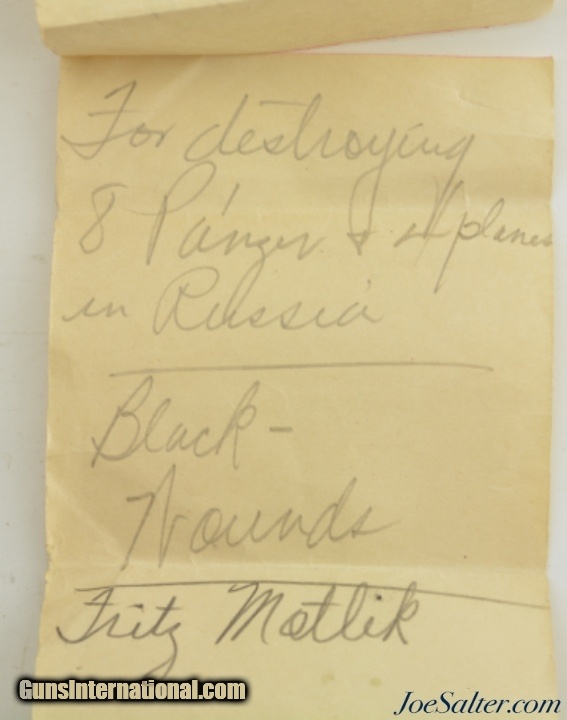 For destroying
8 Panzer + planes
in Russia
Black -
Wounds
Fritz Matlik
GunsInternational.com
JoeSalter.com